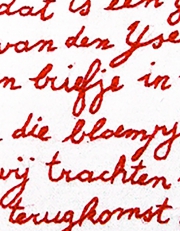 dat is een g
van den Yse
n briefje in
die bloempj
wij trachten
terugkomst